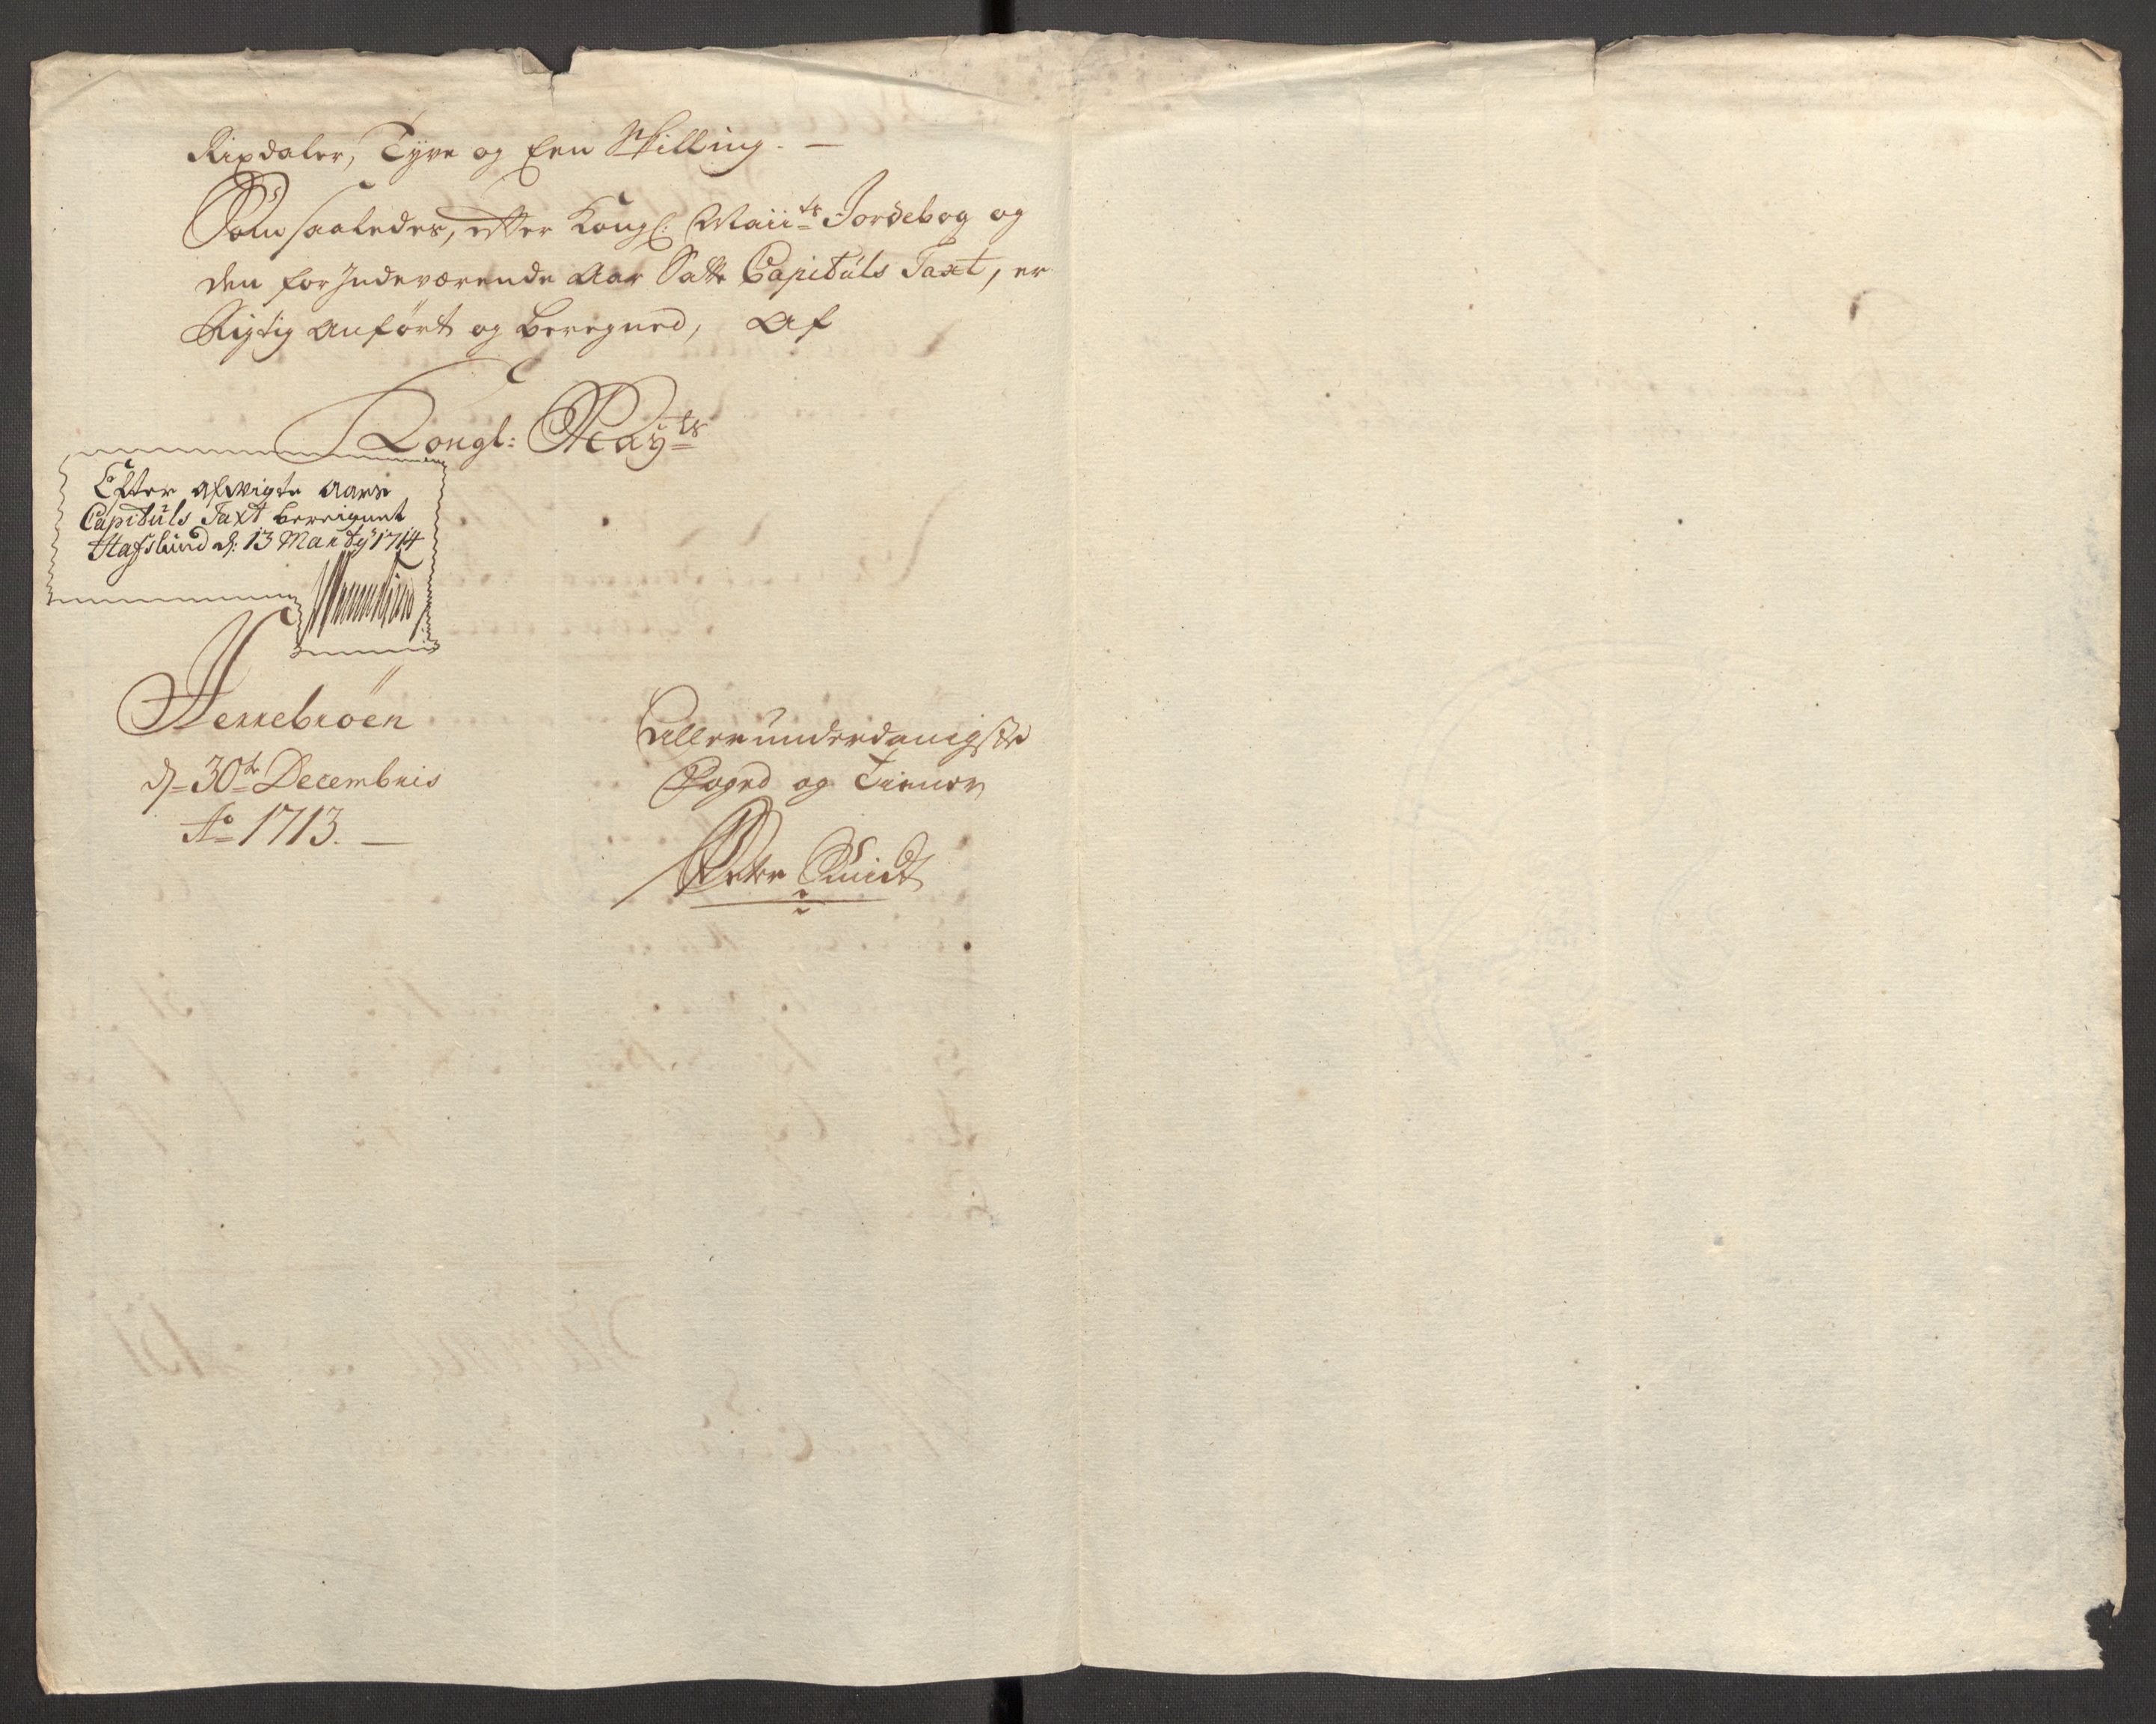 Rixdaler, Tyve og Een Skilling. —
Som saaledes, efter Kongl: Maii^ts Jordebog og
den for Indeværende Aar Satte Capituls Taxt, er
Rigtig Anført og beregned, Af
Kongl: May^ts
Efter afvigte Aars
Capituls Taxt bereignet
Hafslund d: 13 Marty 1714
Herrebröen
d= 30^te Decembris
Ao 1713. —
Allerunderdanigste
Foged og Tiener
Peter Smidt